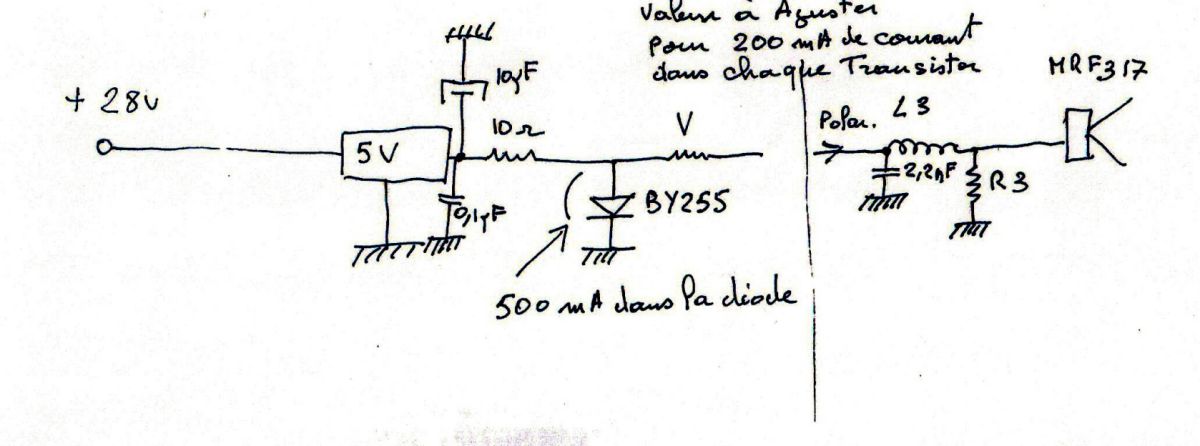 Valeur à Ajuster
pour 200 mA de courant
dans chaque Transistor
MRF317
+ 28v
10µF
10Ω
V
Polar.
L3
5V
2,2nF
R3
BY255
0,1µF
500 mA dans la diode